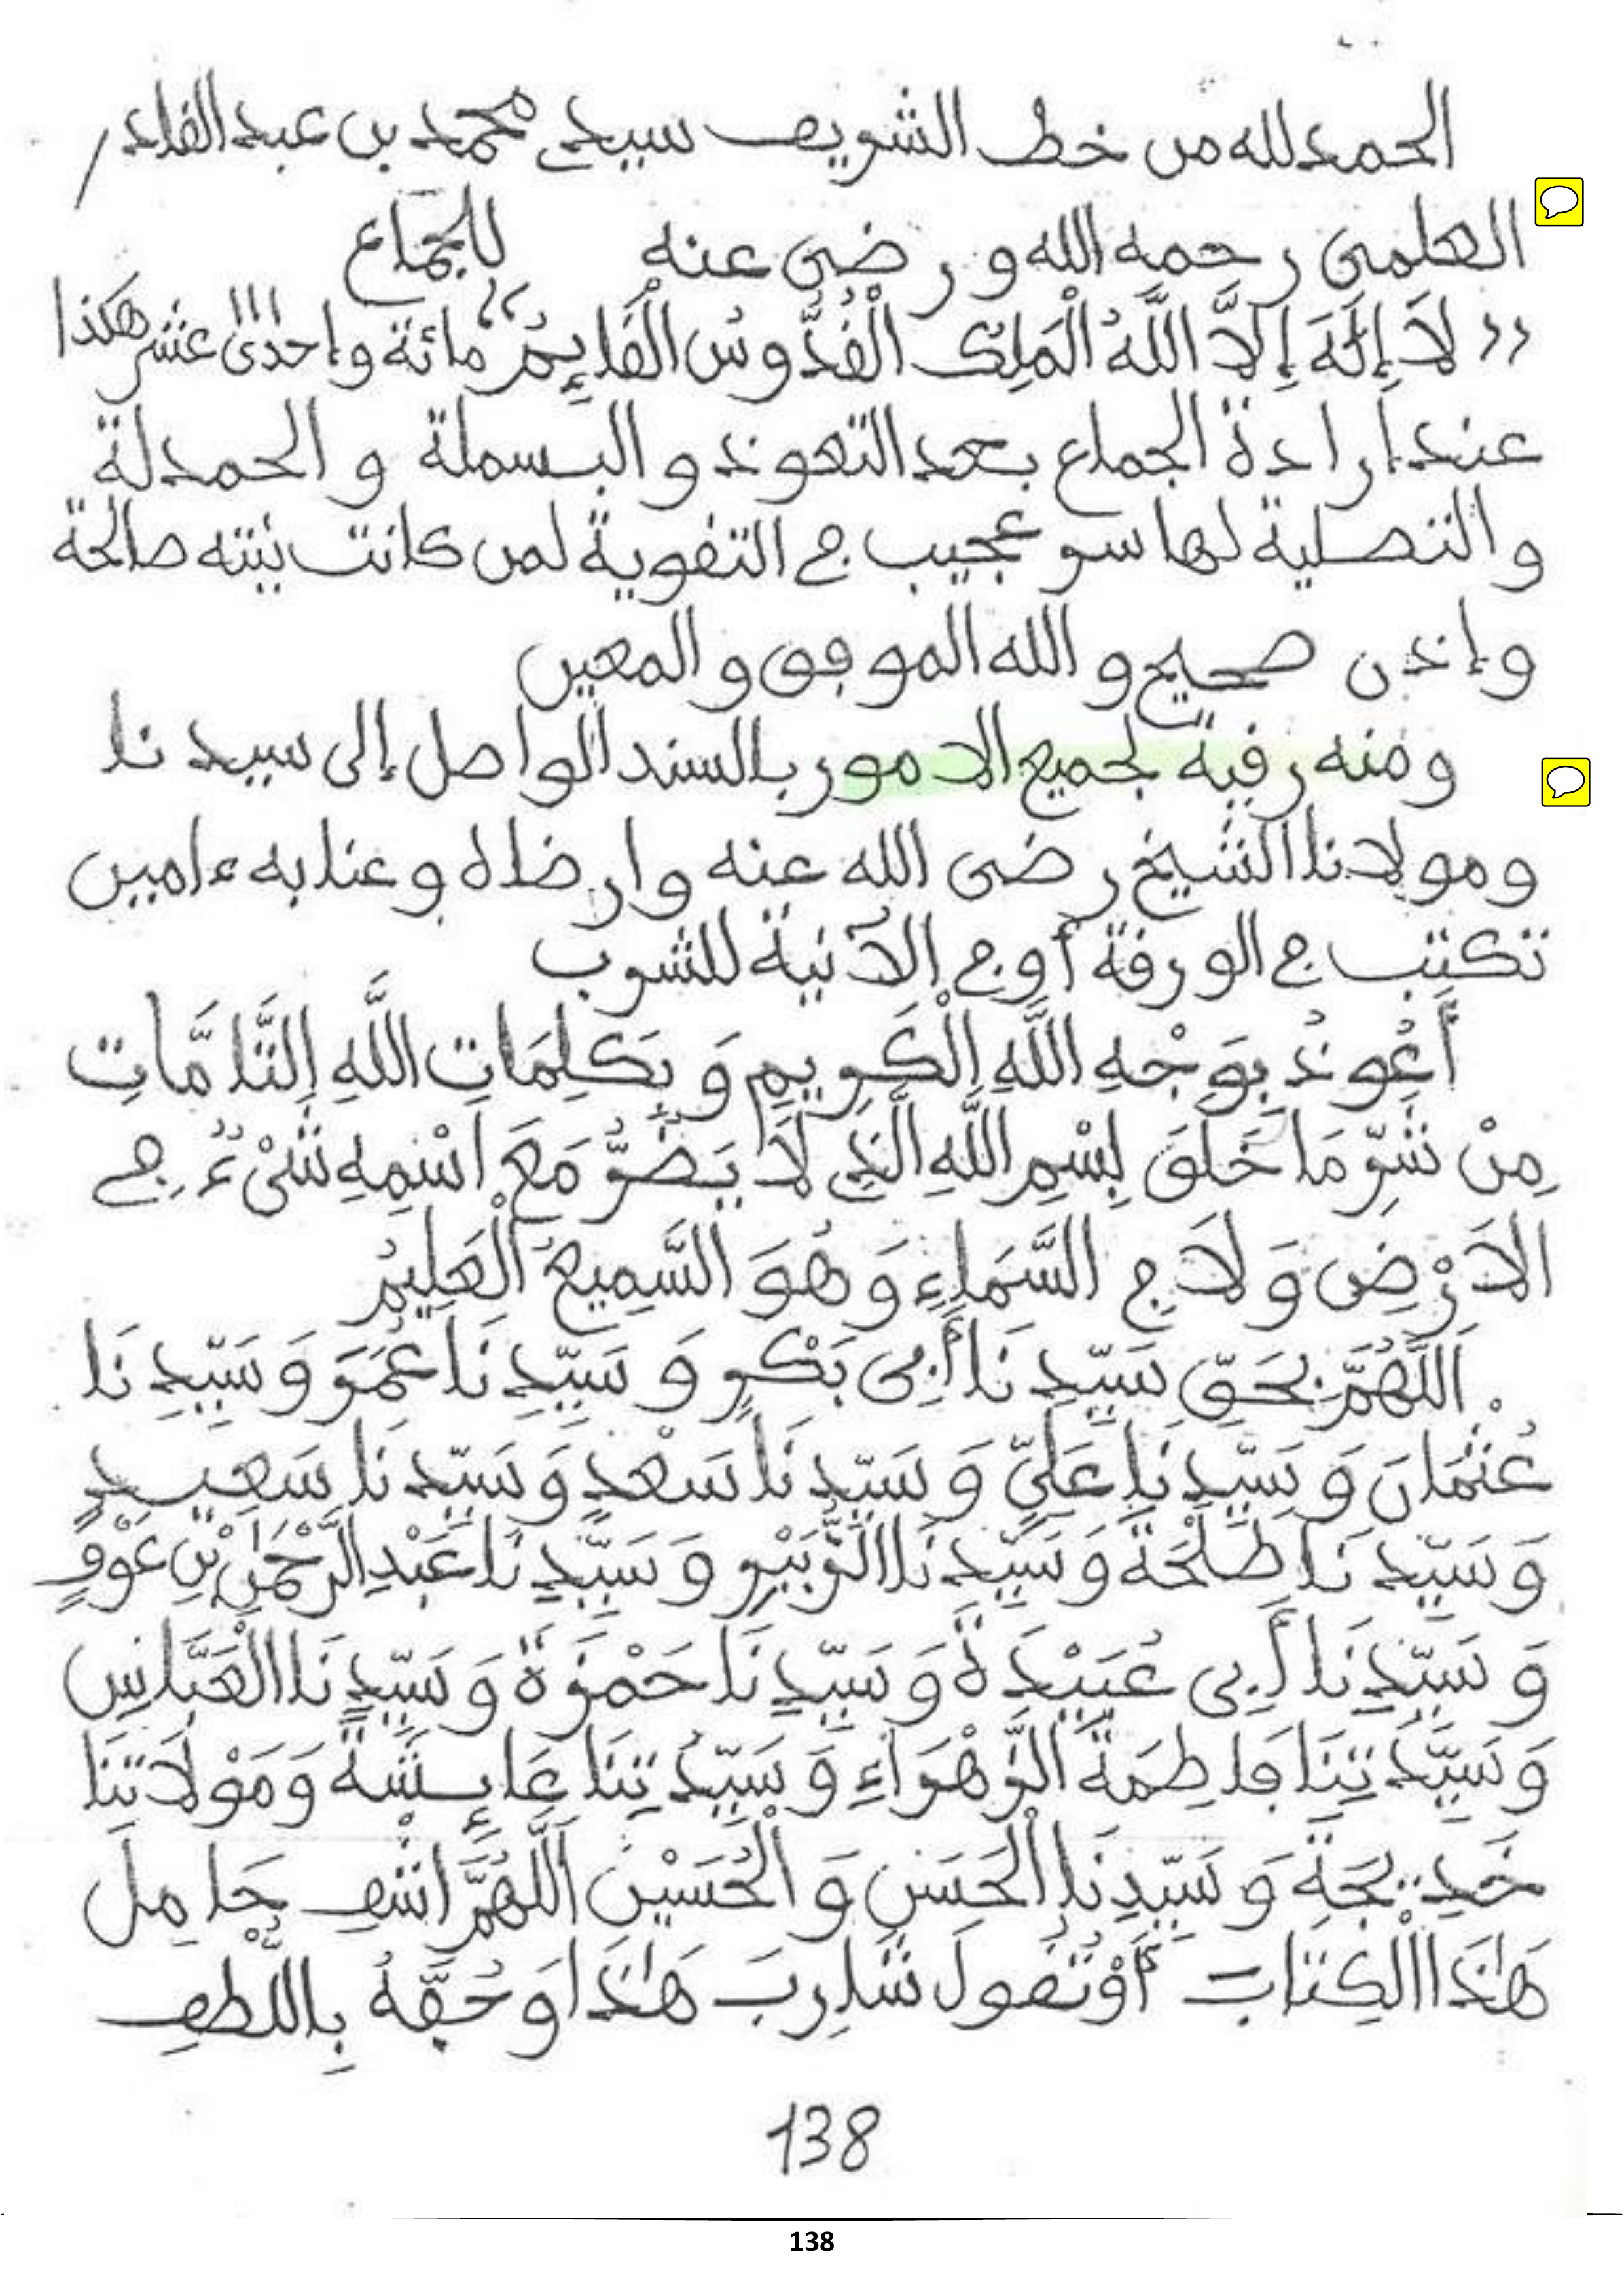 الحمد لله من خط الشريف سيدي محمد بن عبد القادر
العلمي رحمه الله ورضي عنه للجماع
«لَا إِلَٰهَ إِلَّا اللَّهُ الْمَلِكُ الْقُدُّوسُ الْقَائِمُ» مائة وإحدى عشر هكذا 111
عند إرادة الجماع بعد التعوذ والبسملة والحمدلة
والتصلية لها سر عجيب في التقوية لمن كانت نيته صالحة
وإذن صحيح والله الموفق والمعين
ومنه رقية لجميع الامور بالسند الواصل إلى سيدنا
ومولانا الشيخ رضى الله عنه وارضاه وعنا به ءامين
تكتب في الورقة أو في الآنية للشرب
أَعُوذُ بِوَجْهِ اللَّهِ الْكَرِيمِ وَ بِكَلِمَاتِ اللَّهِ التَّامَّاتِ
مِنْ شَرِّ مَا خَلَقَ بِسْمِ اللَّهِ الَّذِي لَا يَضُرُّ مَعَ اسْمِهِ شَيْءٌ فِي
الَارْضِ وَلَا فِي السَّمَاءِ وَهُوَ السَّمِيعُ الْعَلِيمُ
اَللَّهُمَّ بِحَقِّ سَيِّدِنَا أَبِى بَكْرٍ وَ سَيِّدِنَا عُمَرَ وَ سَيِّدِنَا
عُثْمَانَ وَ سَيِّدِنَا عَلِيٍّ وَ سَيِّدِنَا سَعْدٍ وَ سَيِّدِنَا سَعِيدٍ
وَ سَيِّدِنَا طَلْحَةَ وَ سَيِّدِنَا الزُّبَيْرِ وَ سَيِّدِنَا عَبْدِ الرَّحْمَٰنِ بْنِ عَوْفٍ
وَ سَيِّدِنَا أَبِى عُبَيْدَةَ وَ سَيِّدِنَا حَمْزَةَ وَ سَيِّدِنَا الْعَبَّاسِ
وَ سَيِّدَتِنَا فَاطِمَةَ الزَّهْرَاءِ وَ سَيِّدَتِنَا عَائِشَةَ وَمَوْلَاتِنَا
خَدِيجَةَ وَ سَيِّدِنَا الْحَسَنِ وَ الْحُسَيْنِ اَللَّهُمَّ اشْفِ حَامِلَ
هَٰذَا الْكِتَابَ أَوْ تَقُولَ شَارِبَ هَٰذَا وَ حُفَّهُ بِاللُّطْفِ
138
138